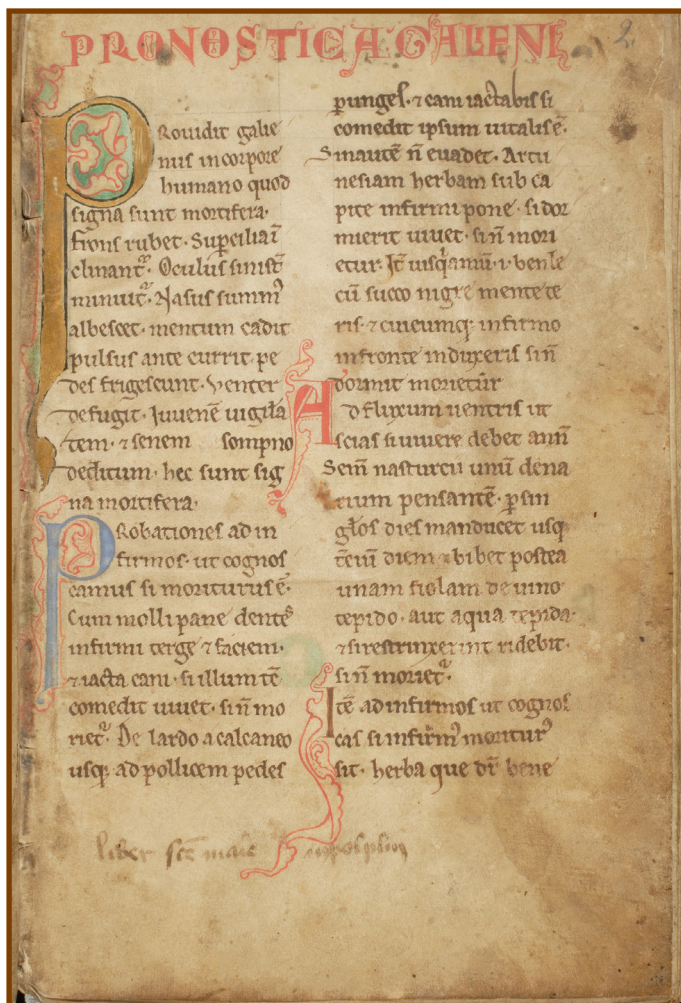 PRONOSTICA GALIENI
2
Prouidit galie
nus in corpore
humano quod
signa sunt mortifera·
frons rubet· Supercilia ī
clinant᷑· Oculus sinist̄
minuit᷑· Nasus summꝰ
albescet· mentum cadit
pulsus ante currit· pe
des frigescunt· Venter
defugit· Iuuenē uigila
tem· ⁊ senem sompno
deditum· hec sunt sig
na mortifera·
Probationes ad in
firmos· ut cognos
camus si moriturus ē·
Cum molli pane dentes
infirmi terge ⁊ faciem·
⁊ iacta cani· si illum tē
comedit uiuet· si n̄ mo
riet᷑· De lardo a calcaneo
usq; ad pollicem pedes
ꝑunges· ⁊ cani iactabis si
comedit ipsum uitalis ē·
Sin autē n̄ euadet· Artu
nesiam herbam sub ca
pite infirmi pone· si dor
mierit uiuet· si n̄ mori
etur· It̄ iusq̇amū· ı· benle
cū suco nigre mente te
ris· ⁊ cuicumq; infirmo
in fronte induxeris si n̄
dormit morietūr
Ad fluxum uentris ut
scias si uiuere debet an n̄
Sem̄ nasturcii unū dena
rium pensantē· ꝑ sin
głos dies manducet usq;
t̄ciū diem ⁊ bibet postea
unam fiolam de uino
tepido· aut aqua tepida·
⁊ si restrinxerint ridebit·
si n̄ moriet᷑·
Itē ad infirmos ut cognos
cas si infirmꝰ moriturꝰ
sit· herba que dr̄ bene
liber sc̄e marie